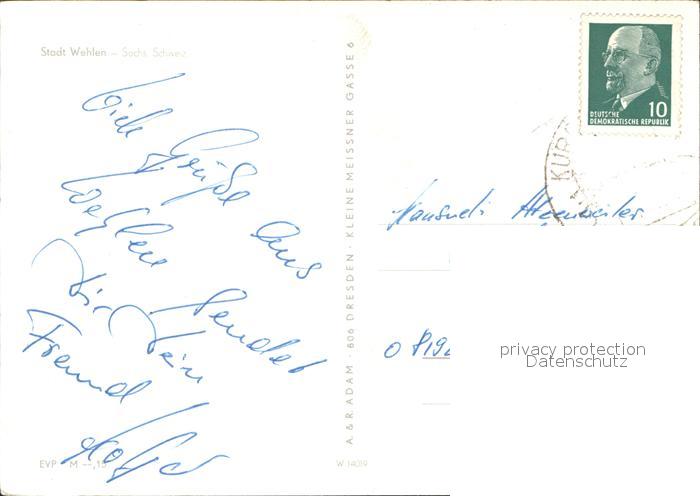 Stadt Wehlen – Sächs. Schweiz
Viele Grüße aus
Wehlen sendet
Dir Dein
Freund
EVP M –,15
A. & R. ADAM · 806 DRESDEN · KLEINE MEISSNER GASSE 6
W 14019
10
DEUTSCHE
DEMOKRATISCHE REPUBLIK
KUR
privacy protection
Datenschutz